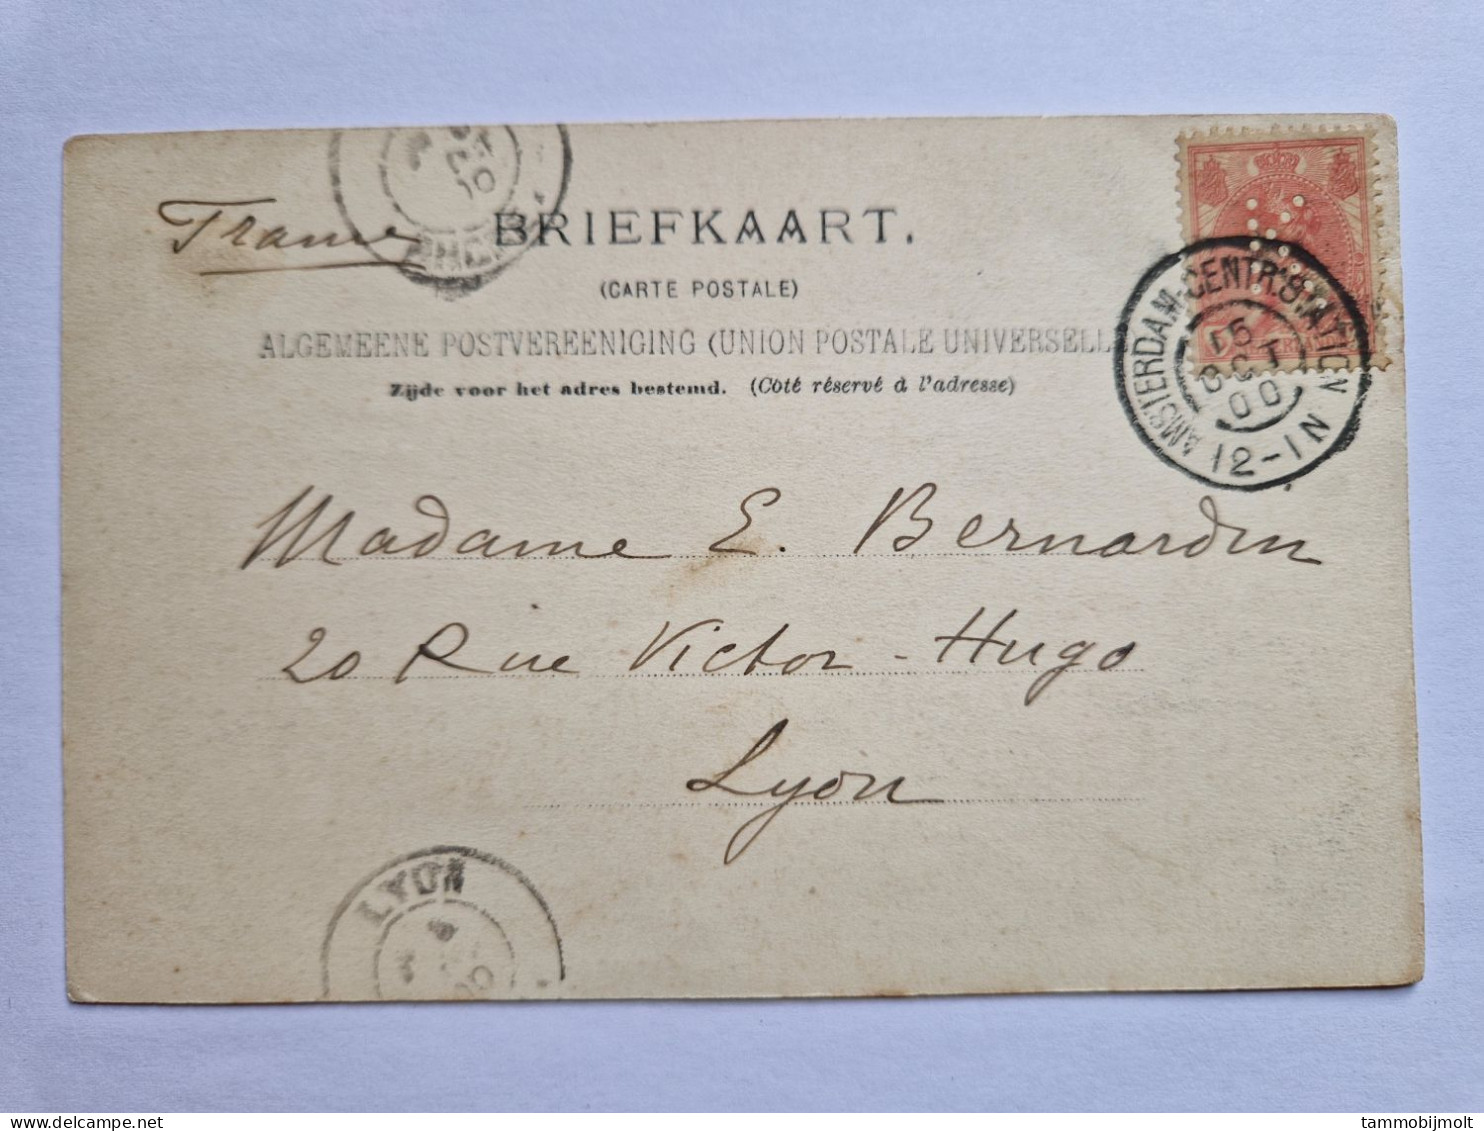 France
BRIEFKAART.
(CARTE POSTALE)
ALGEMEENE POSTVEREENIGING (UNION POSTALE UNIVERSELL
Zijde voor het adres bestemd. (Côté réservé à l'adresse)
AMSTERDAM-CENTR:STATION
OCT
00
12-1N
Madame E. Bernardin
20 Rue Victor-Hugo
Lyon
LYON
delcampe.net
tammobijmolt